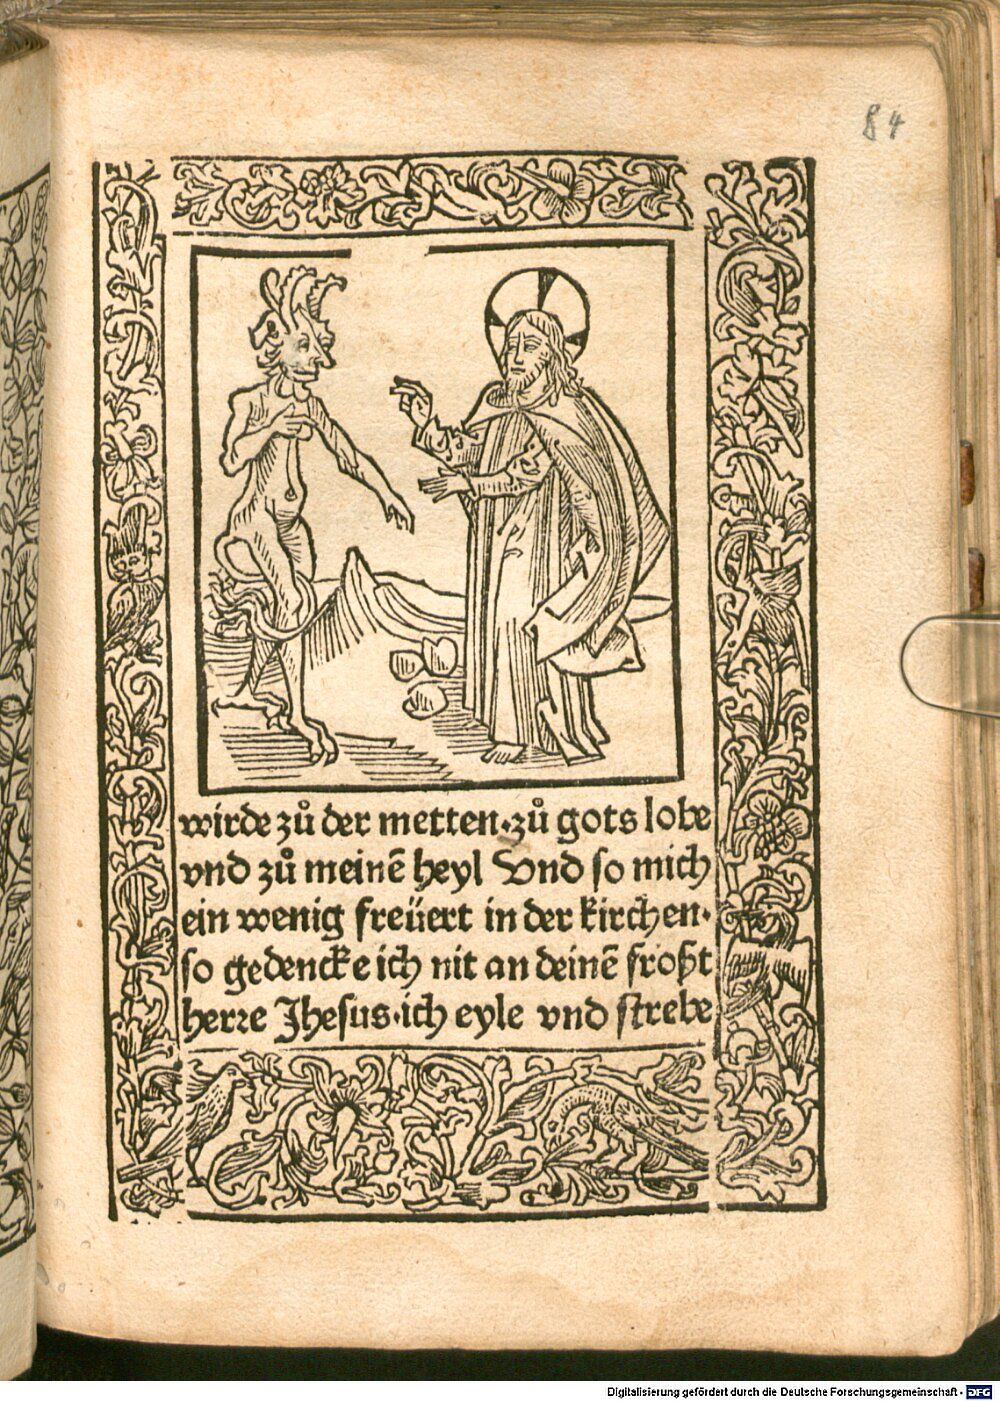 84
wirde zů der metten·zů gots lobe
vnd zů meinē heyl Vnd so mich
ein wenig freüert in der kirchen·
so gedencke ich nit an deinē froßt
herre Jhesus·ich eyle vnd strebe
Digitalisierung gefördert durch die Deutsche Forschungsgemeinschaft - DFG